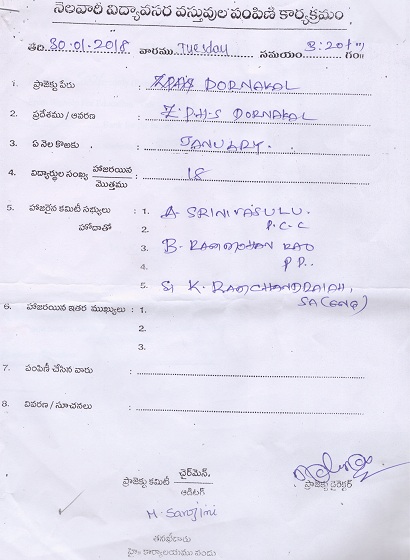 నెలవారీ విద్యావసర వస్తువుల పంపిణీ కార్యక్రమం
తేది: 30-01-2018 వారము Tuesday సమయం 3:20 గం॥
1. ప్రాజెక్టు పేరు : ZPHS DORNAKAL
2. ప్రదేశము / ఆవరణ : Z P.H-S DORNAKAL
3. ఏ నెల కొఱకు : JANUARY.
4. విద్యార్థుల సంఖ్య హాజరయిన / మొత్తము : 18
5. హాజరైన కమిటీ సభ్యులు : 1. A- SRINIVASULU.
హోదాతో 2. P.C.C
3. B- RAMMOHAN RAO
4. PP..
5. Sri K. RAMCHANDRAIAH,
SA(ENG)
6. హాజరయిన ఇతర ముఖ్యులు : 1.
2.
3.
7. పంపిణీ చేసిన వారు :
8. వివరణ / సూచనలు :
ప్రాజెక్టు కమిటీ చైర్‌మెన్. / ఆడిటర్ ప్రాజెక్టు డైరెక్టర్
M. Sarojini